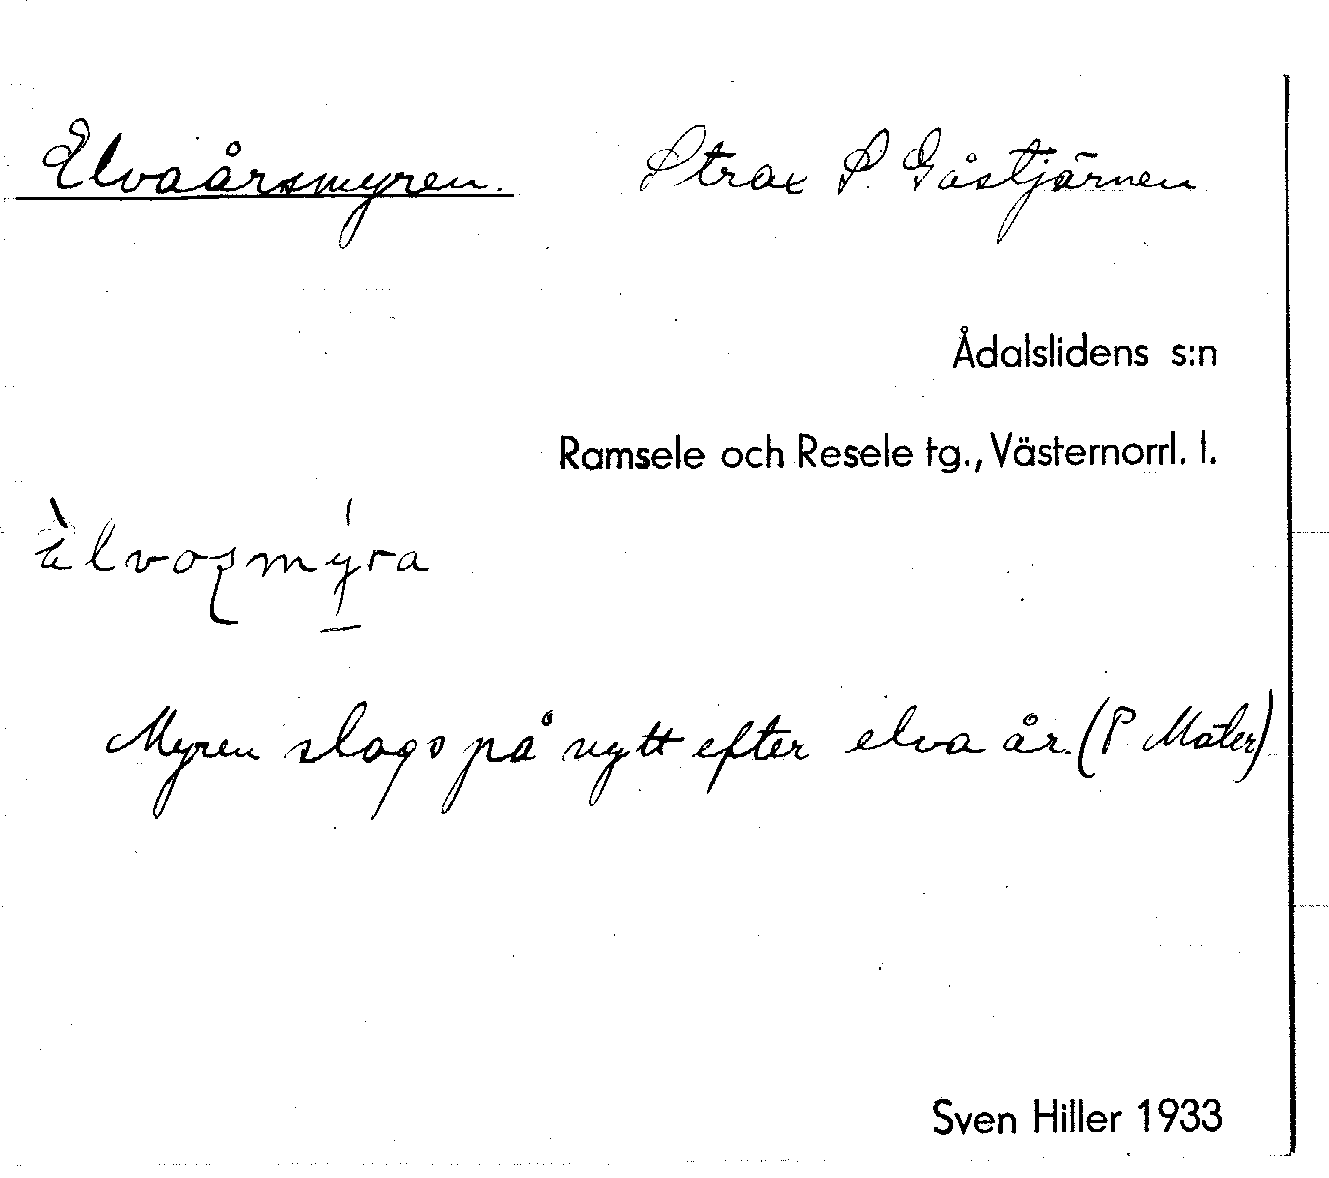 Elvaårsmyren. Strax S. Gåstjärnen
Ådalslidens s:n
Ramsele och Resele tg., Västernorrl. l.
Myren slogs på nytt efter elva år. (P Mäler)
Sven Hiller 1933